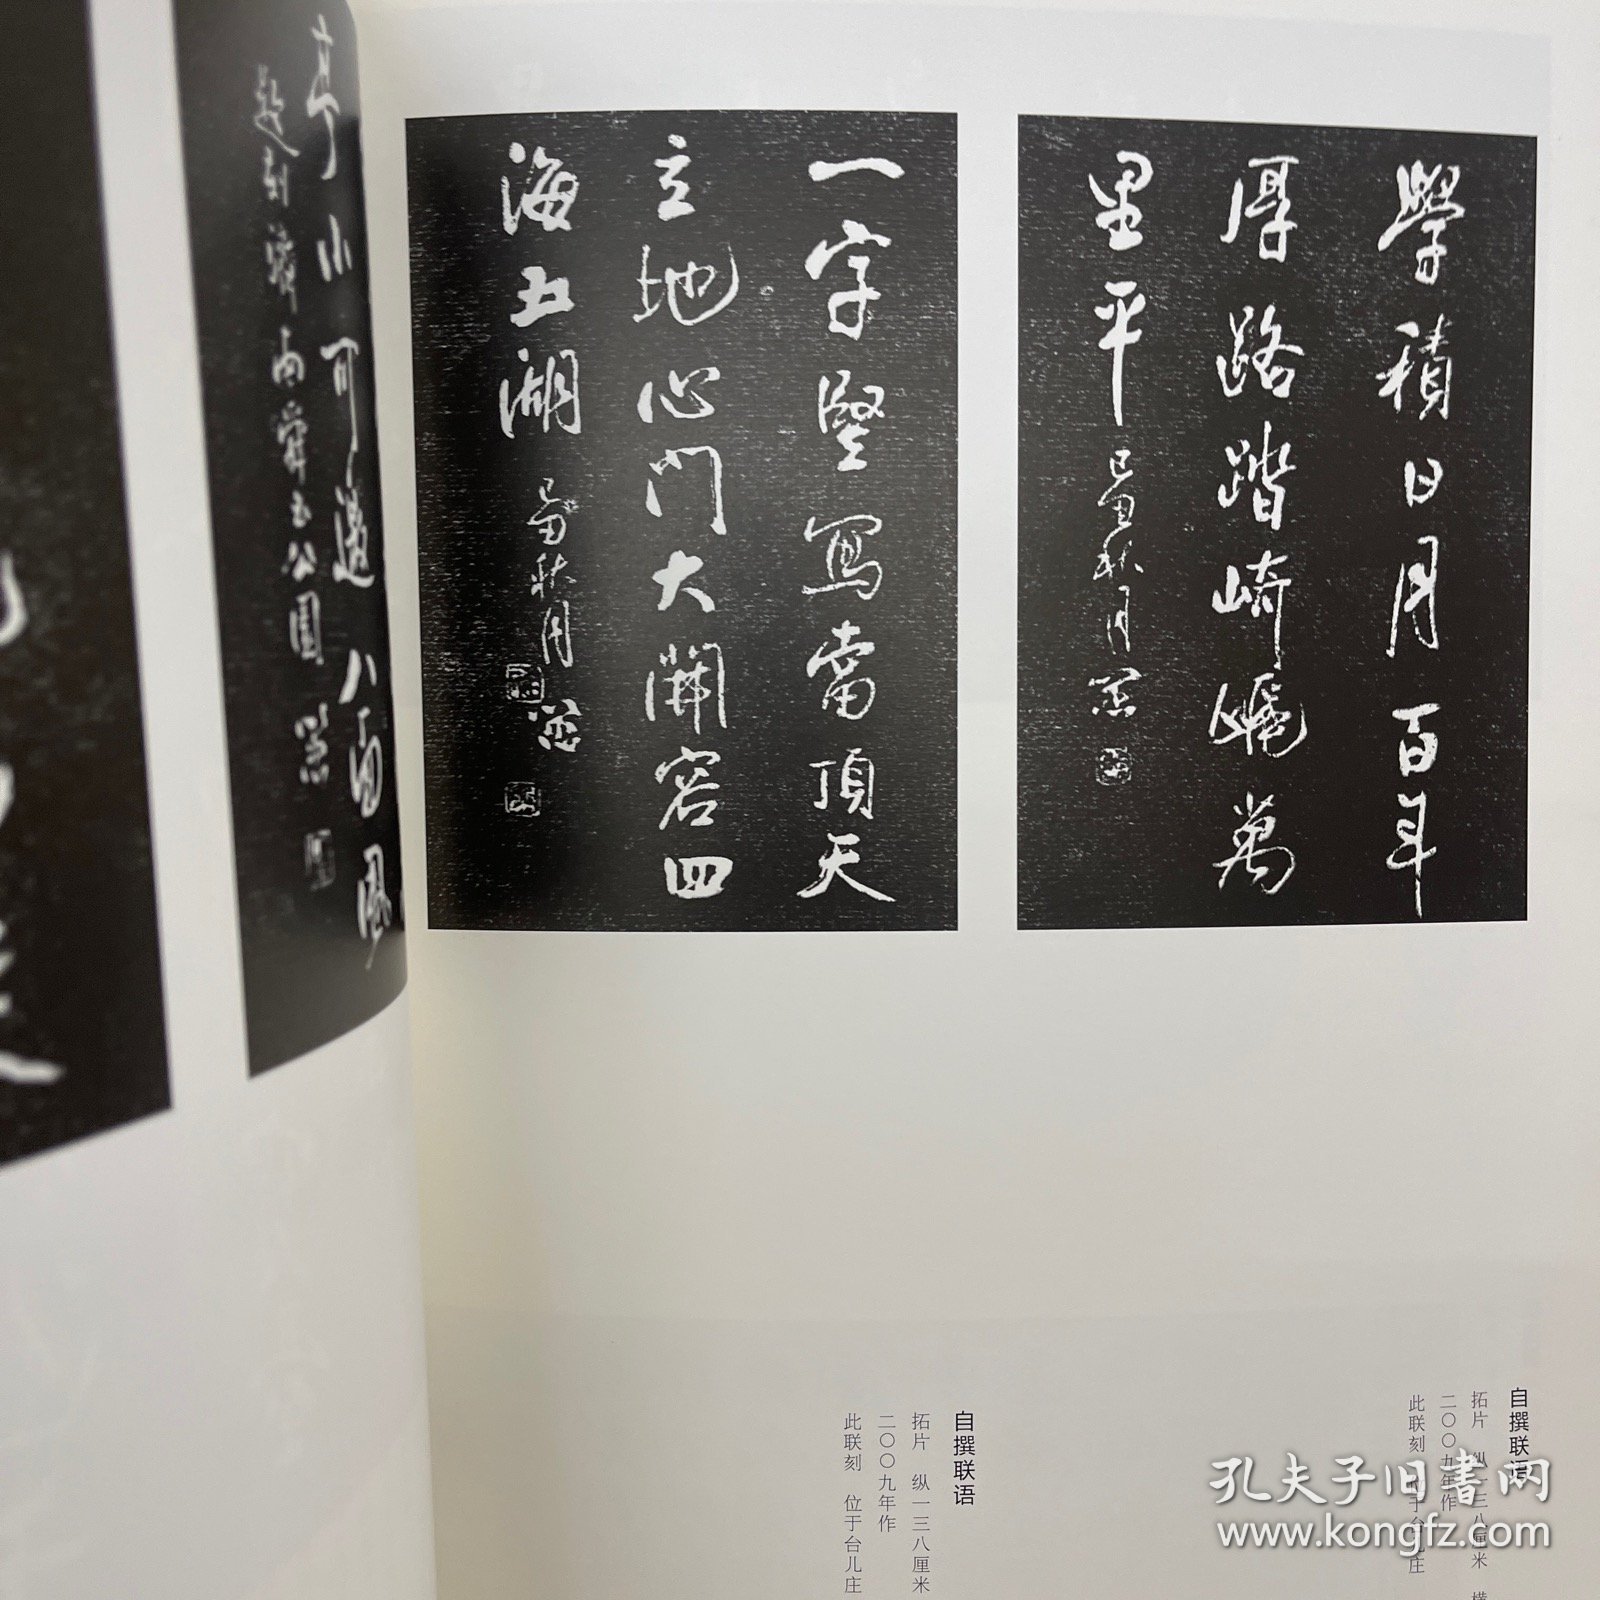 學積日月百年
厚路踏崎嶇萬
里平 己丑秋月
一字堅寫當頂天
立地心門大開容四
海五湖 己丑秋月
亭小可邀八面風
自撰联语
拓片 纵一三八厘米 横
二〇〇九年作
此联刻 位于台儿庄
自撰联语
拓片 纵一三八厘米
二〇〇九年作
此联刻 位于台儿庄
孔夫子旧书网
www.kongfz.com